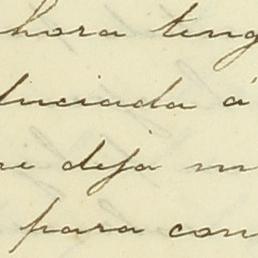 hora teng
luciada á
e deja m
para con